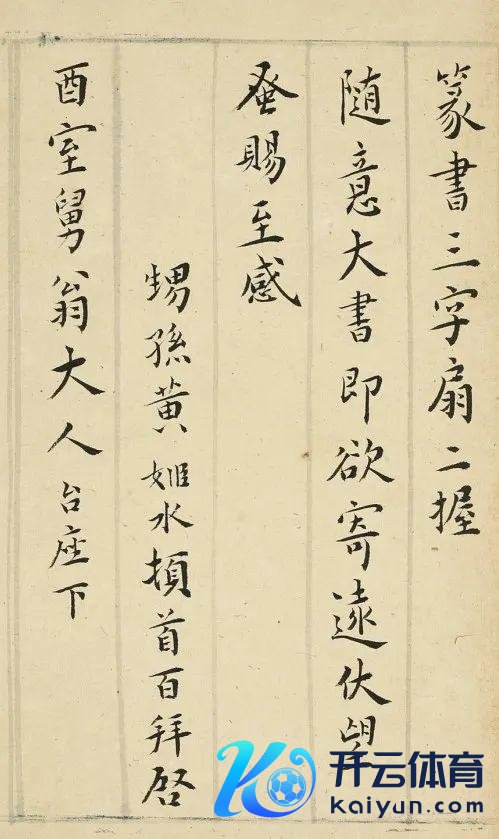 篆書三字扇二握
隨意大書即欲寄遠伏望
蚤賜至感
甥孫黄姬水頓首百拜啓
酉室舅翁大人台座下
开云体育
kaiyun.com